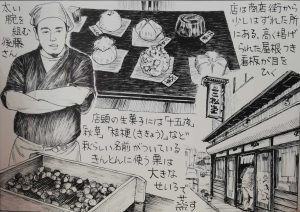 太い
腕を
組む
後藤
さん
店は商店街から
少しはずれた所
にある。高く揚げ
られた屋根つき
看板が目を
ひく
店頭の生菓子には「十五夜」
秋草」「桔梗(ききょう)」など
秋らしい名前がついている
きんとんに使う栗は
大きな
せいろで
蒸す